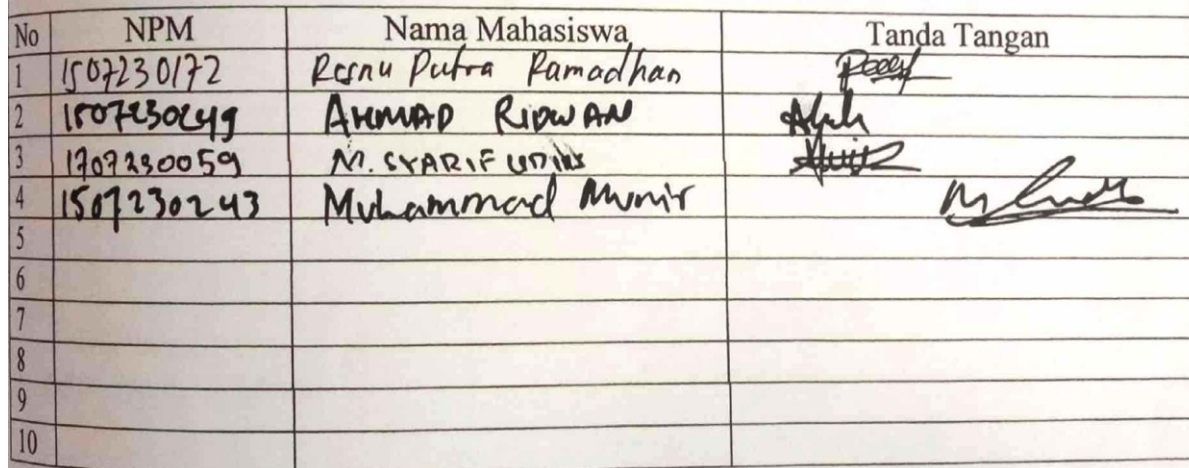 No NPM Nama Mahasiswa Tanda Tangan
1 1507230172 Resnu Putra Ramadhan
2 1507230249 AHMAD RIDWAN
3 1707230059 M. SYARIFUDIN
4 1507230243 Muhammad Munir
5
6
7
8
9
10